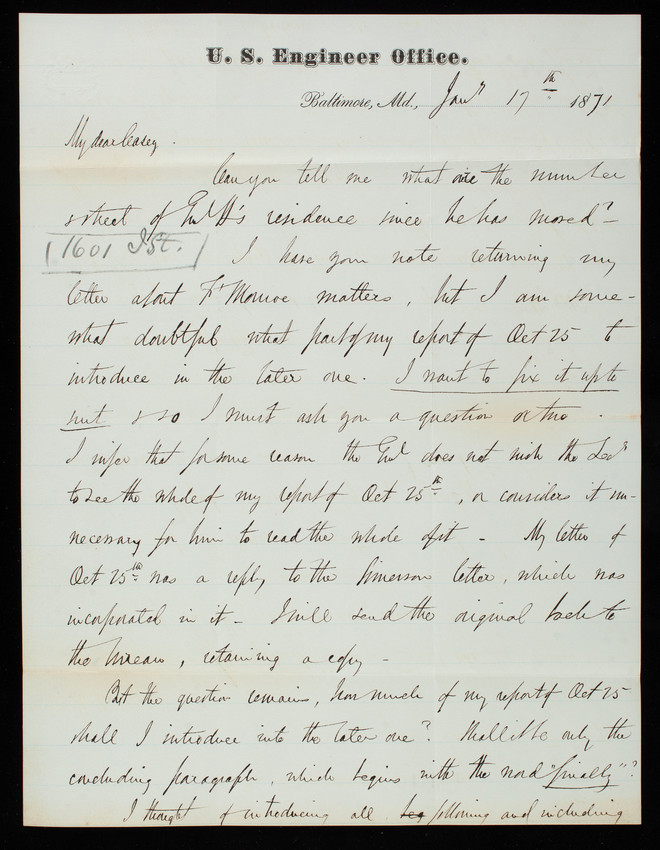 U. S. Engineer Office.
Baltimore, Md., Jany 17th 1871
My dear Casey.
Can you tell me what are the number
& street of Genl H's residence since he has moved? -
(1601 I St.)
I have your note returning my
letter about Ft Monroe matters, but I am some-
what doubtful what part of my report of Oct 25 to
introduce in the later one. I want to fix it up to
suit & so I must ask you a question or two.
I infer that for some reason the Genl does not wish the Secy
to see the whole of my report of Oct 25th, or considers it un-
necessary for him to read the whole of it - My letter of
Oct 25th was a reply to the Simerson letter, which was
incorporated in it - I will send the original back to
the bureau, retaining a copy -
But the question remains, how much of my report of Oct 25
shall I introduce into the later one? Shall it be only the
concluding paragraph, which begins with the word "finally"?
I thought of introducing all following and including